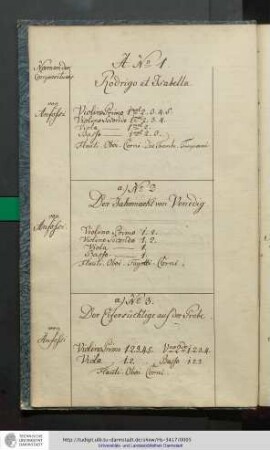 A. No 1.
Rodrigo et Isabella
Namen der Compositeurs
von Anfossi
Violino Primo 1 2. 3. 4. 5.
Violino Secondo 1 2. 3. 4.
Viola 1 2.
Basso 1 2. 3.
Flauti. Oboi. Corni. Timpani
a) No 2
Der Jahrmarkt von Venedig
von Anfossi
Violino Primo 1. 2.
Violino Secondo 1. 2.
Viola 1.
Basso 1.
Flauti. Oboi. Fagotti. Corni.
a) No 3.
Der Eifersüchtige auf der Probe
von Anfossi
Violin Primo 1 2 3 4 5. 1. 2. 3. 4.
Viola 1. 2. Basso 1 2 3.
Flauti. Oboi. Corni.
TECHNISCHE UNIVERSITÄT DARMSTADT
http://tudigit.ulb.tu-darmstadt.de/show/Hs-3417/0005
Universitäts- und Landesbibliothek Darmstadt